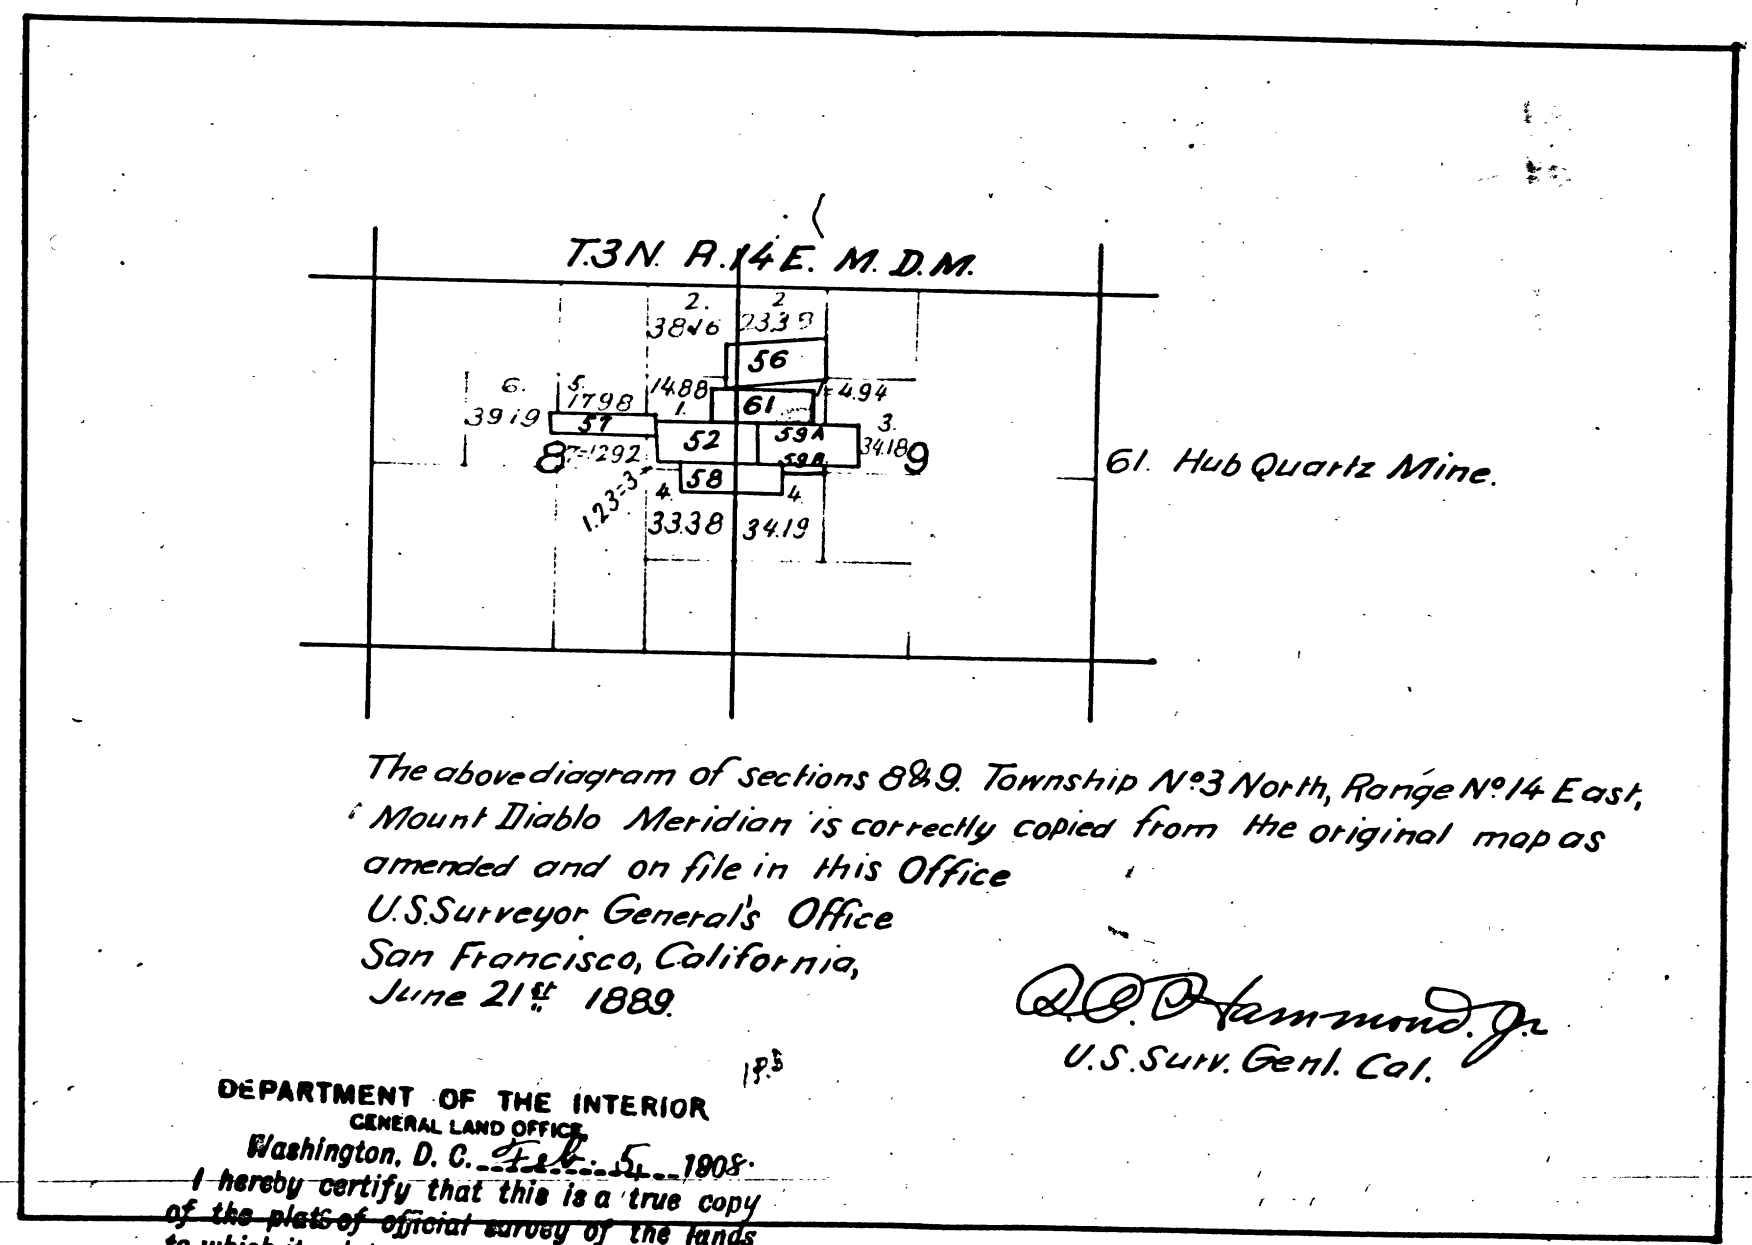 T.3N. R.14E. M.D.M.
2. 2
38.16 23.39
56
6. 5. 14.88 1=4.94
39.19 17.98 1. 61 3.
57 52 59A 34.18
8 7=12.92 59B 9
61. Hub Quartz Mine.
1.23=3 4. 58 4.
33.38 34.19
The above diagram of sections 8&9. Township Nº3 North, Range Nº14 East,
Mount Diablo Meridian is correctly copied from the original map as
amended and on file in this Office
U.S.Surveyor General's Office
San Francisco, California,
June 21st 1889.
Hammond. Jr.
U.S.Surv. Genl. Cal.
DEPARTMENT OF THE INTERIOR
GENERAL LAND OFFICE,
Washington, D. C. Feb. 5 1908.
I hereby certify that this is a true copy
of the plats of official survey of the lands
to which it